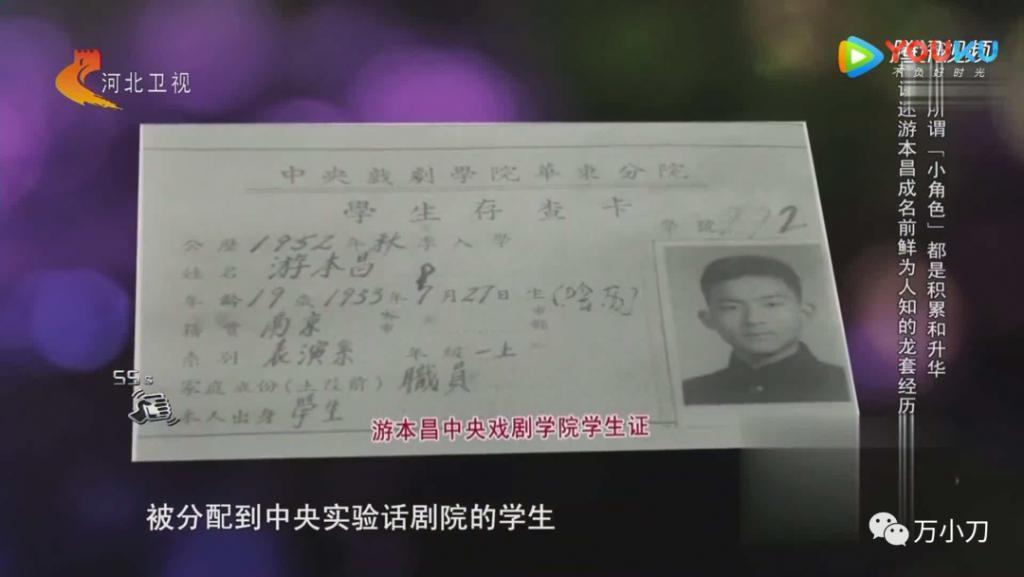 河北卫视
YOUKU
不负好时光
所谓「小角色」都是积累和升华
讲述游本昌成名前鲜为人知的龙套经历
中央戲劇學院華東分院
學生存查卡
學號 2
公歷1952年秋季入學
姓名 游本昌
年齡19歲1933年8月27日生
籍貫 南京
系别 表演系 年級 一上
家庭成份(土改前) 職員
本人出身 學生
55s
游本昌中央戏剧学院学生证
被分配到中央实验话剧院的学生
万小刀